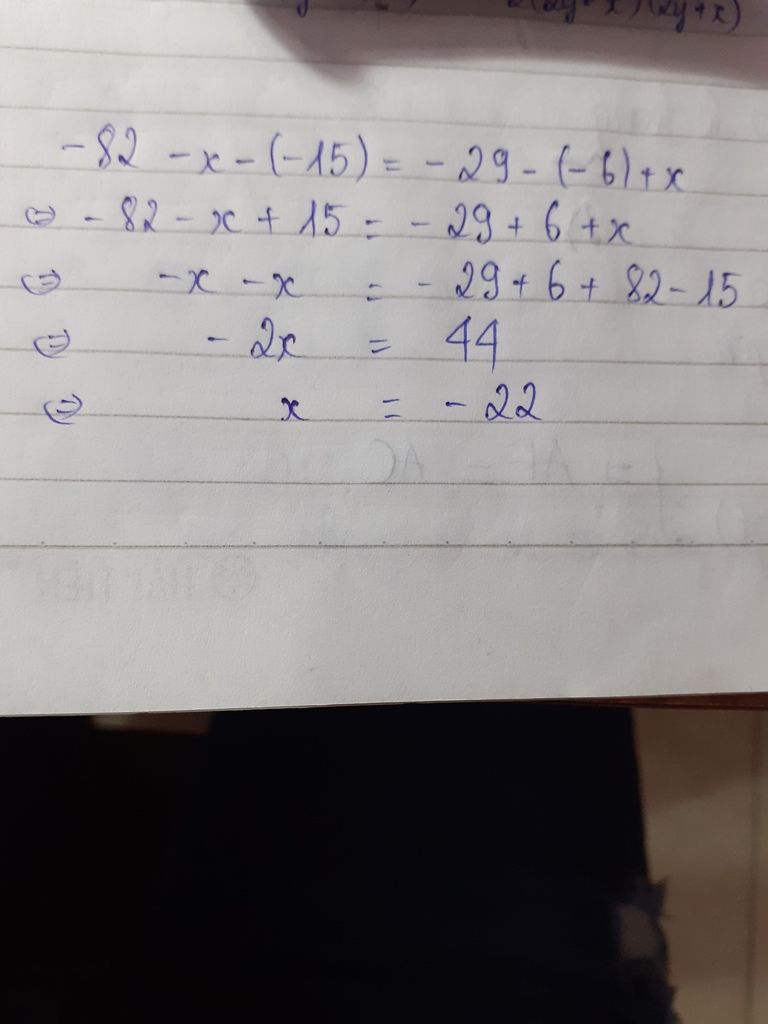 2(2y-x)(2y+x)
-82 -x-(-15) = -29-(-6)+x
⇔ -82-x+15 = -29+6+x
⇔ -x -x = -29+6+82-15
⇔ -2x = 44
⇔ x = -22